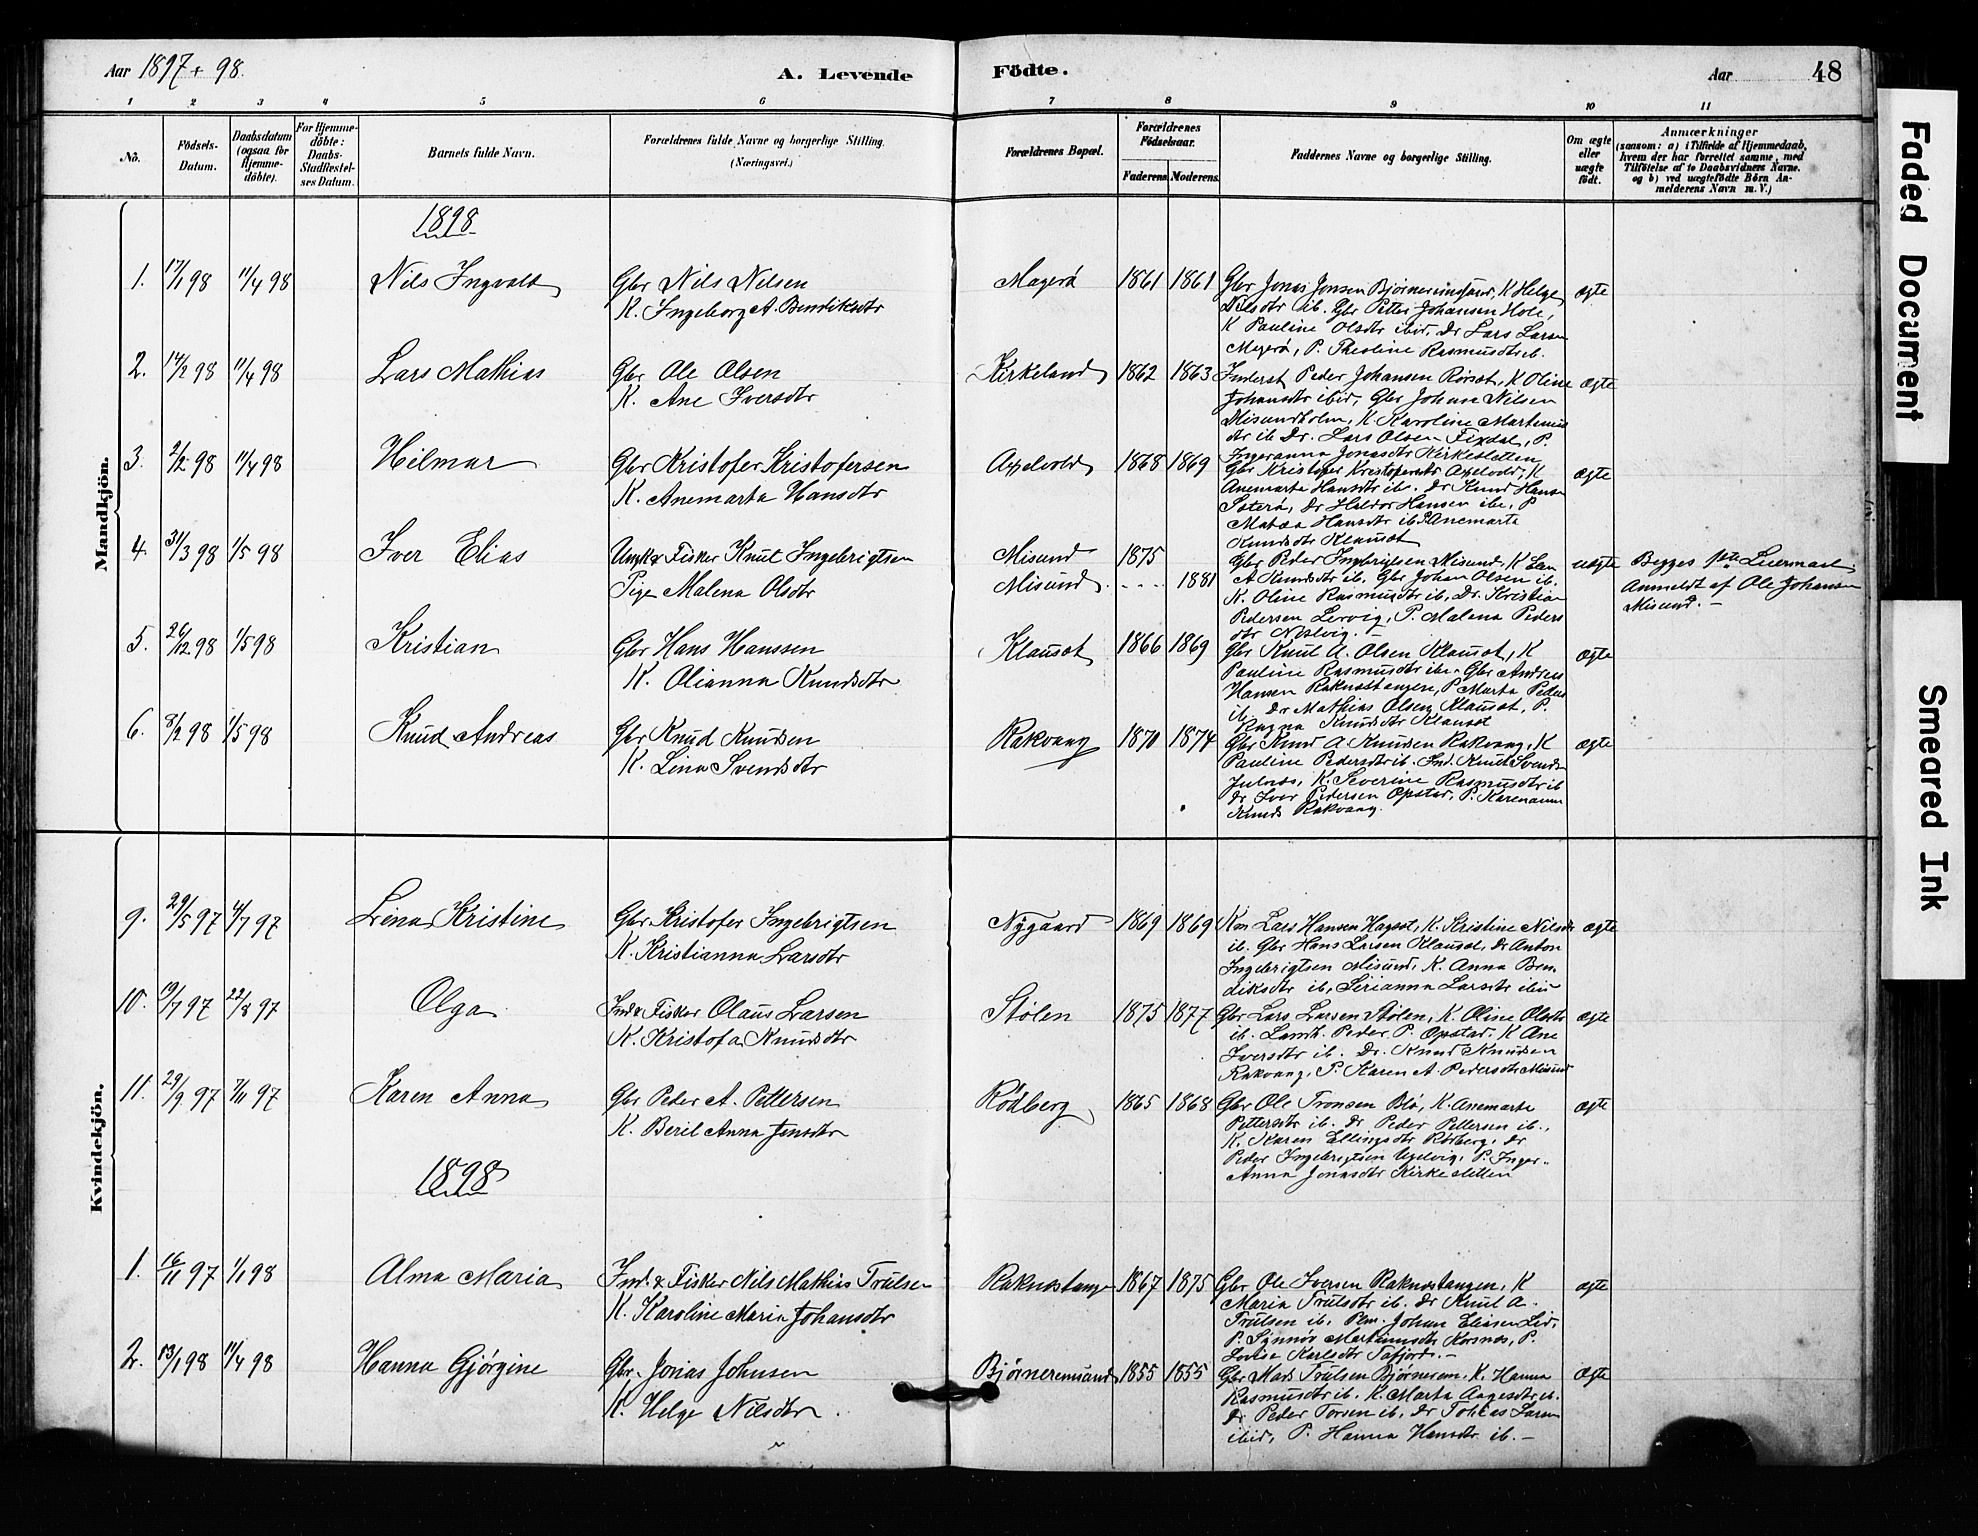 Aar 1897 + 98. A. Levende Födte. Aar 48
1 2 3 4 5 6 7 8 9 10 11
No.
Födsels-
Datum.
Daabsdatum
(ogsaa for
Hjemme-
döbte).
For Hjemme-
döbte:
Daabs-
Stadfæstel-
ses Datum.
Barnets fulde Navn.
Forældrenes fulde Navne og borgerlige Stilling.
(Næringsvei.)
Forældrenes Bopæl.
Forældrenes
Födselsaar.
Faderens. Moderens.
Faddernes Navne og borgerlige Stilling.
Om ægte
eller
uægte
födt.
Anmærkninger
(saasom: a) i Tilfælde af Hjemmedaab,
hvem der har forrettet samme, med
Tilföielse af to Daabsvidners Navne.
og b) ved uægtefödte Börn An-
melderens Navn m. V.)
Mandkjön.
1898
1. 17/1 98 11/4 98 Nils Ingvald Gbr Nils Nilsen Magerø 1861 1861 ægte
K. Ingeborg A. Bendiksdtr
Gbr Jonas Jonsen Bjørneremsund, K Helge
Nilsdtr ib. Gbr Petter Johansen Hole,
K Pauline Olsdtr ibid, Dr Lars Larsen
Magerø, P. Theoline Rasmusdtr ib.
2. 14/2 98 11/4 98 Lars Mathias Gbr Ole Olsen Kirkeland 1862 1863 ægte
K. Ane Iversdtr
Inderst Peder Johansen Rørset, K Oline
Johansdtr ibid, Gbr Johan Nilsen
Misundholm, K. Karoline Martinus
dtr ib Dr. Lars Olsen Fixdal, P.
Ingeranna Jonasdtr Kirkesletten
3. 2/2 98 11/4 98 Hilmar Gbr Kristofer Kristofersen Appelvold 1868 1869 ægte
K. Anemarta Hansdtr
Gbr Kristofer Kristofersen Appelvold, K
Anemarta Hansdtr ib. Dr Knud Hansen
Sæterø, Dr Haldor Hansen ibe, P
Matea Hansdtr ib P Anemarta
Knudsdtr Klauset
4. 31/3 98 1/5 98 Iver Elias Ungk & Fisker Knut Ingebrigtsen Misund 1875 uægte Begges 1ste Leiermaal
Pige Malena Olsdtr Misund 1881 Anmeldt af Ole Johansen
Misund. -
Gbr Peder Ingebrigtsen Misund, K
A Knudsdtr ib. Gbr Johan Olsen ib.
K. Oline Rasmusdtr ib, Dr. Kristian
Pedersen Lervig, P. Malena Peders
dtr Nesvig. -
5. 26/12 98 1/5 98 Kristian Gbr Hans Hanssen Klauset 1866 1869 ægte
K. Olianna Knudsdtr
Gbr Knut A. Olsen Klauset, K
Pauline Rasmusdtr ibe. Gbr Andreas
Hansen Raknestangen, P Marta Peders
ib, Dr Mathias Olsen Klauset, P.
Ragna Knudsdtr Klauset
6. 8/2 98 1/5 98 Knud Andreas Gbr Knud Knudsen Rakvaag 1870 1874 ægte
K. Lina Svendsdtr
Gbr Knud A. Knudsen Rakvaag, K
Pauline Pedersdtr ib. Ind. Knut Svends
Julnes, K. Severine Rasmusdtr ib
Dr Iver Pedersen Opstad, P. Karenanna
Knuds Rakvaag.
Kvindekjön.
9. 29/5 97 4/7 97 Lina Kristine Gbr Kristofer Ingebrigtsen Nygaard 1869 1869 ægte
K. Kristianna Larsdtr
Km Lars Hansen Hagset, K. Kristine Nilsdtr
ib. Gbr Hans Larsen Klauset, Dr Anton
Ingebrigtsen Misund, K. Anna Ben-
diksdtr ib, Sirianna Larsdtr ibid
10. 19/7 97 22/8 97 Olga Ind & Fisker Olaus Larsen Stølen 1875 1877 ægte
K. Kristofa Knudsdtr
Gbr Lars Larsen Stølen, K. Oline Olsdtr
ib. Landh. Peder P. Opstad, K Ane
Iversdtr ib. Dr. Knud Knudsen
Rakvaag, P. Karen A Pedersdtr Misund
11. 29/9 97 7/11 97 Karen Anna Gbr Peder A. Pettersen Rødberg 1865 1868 ægte
K. Beril Anna Jensdtr
Gbr Ole Tronsen Blø, K. Anemarta
Pettersdtr ib. Dr Peder Pettersen ib.,
K. Karen Ellingsdtr Rødberg, Dr
Peder Ingebrigtsen Ugelvig, P. Inger-
Anna Jonasdtr Kirkesletten
1898
1. 16/11 97 1/1 98 Alma Maria Ind. & Fisker Nils Mathias Trulsen Raknestangen 1867 1875 ægte
K. Karoline Maria Johansdtr
Gbr Ole Iversen Raknestangen, K
Maria Trulsdtr ib. Dr Knut A.
Trulsen ib, Pm. Johan Eliasen Lid,
P. Synnøv Martinusdtr Korsnes, P.
Lovise Karlsdtr Tafjord. -
2. 13/1 98 11/4 98 Hanna Gjørgine Gbr. Jonas Johnsen Bjørneremsund 1855 1855 ægte
K. Helge Nilsdtr.
Gbr Mads Trulsen Bjørnerem, K. Hanna
Rasmusdtr ib. K. Marta Aagesdtr ib.
Dr Peder Torsen ib, Dr Tobias Larsen
ibid, P. Hanna Hansdtr ib. -
Faded Document
Smeared Ink